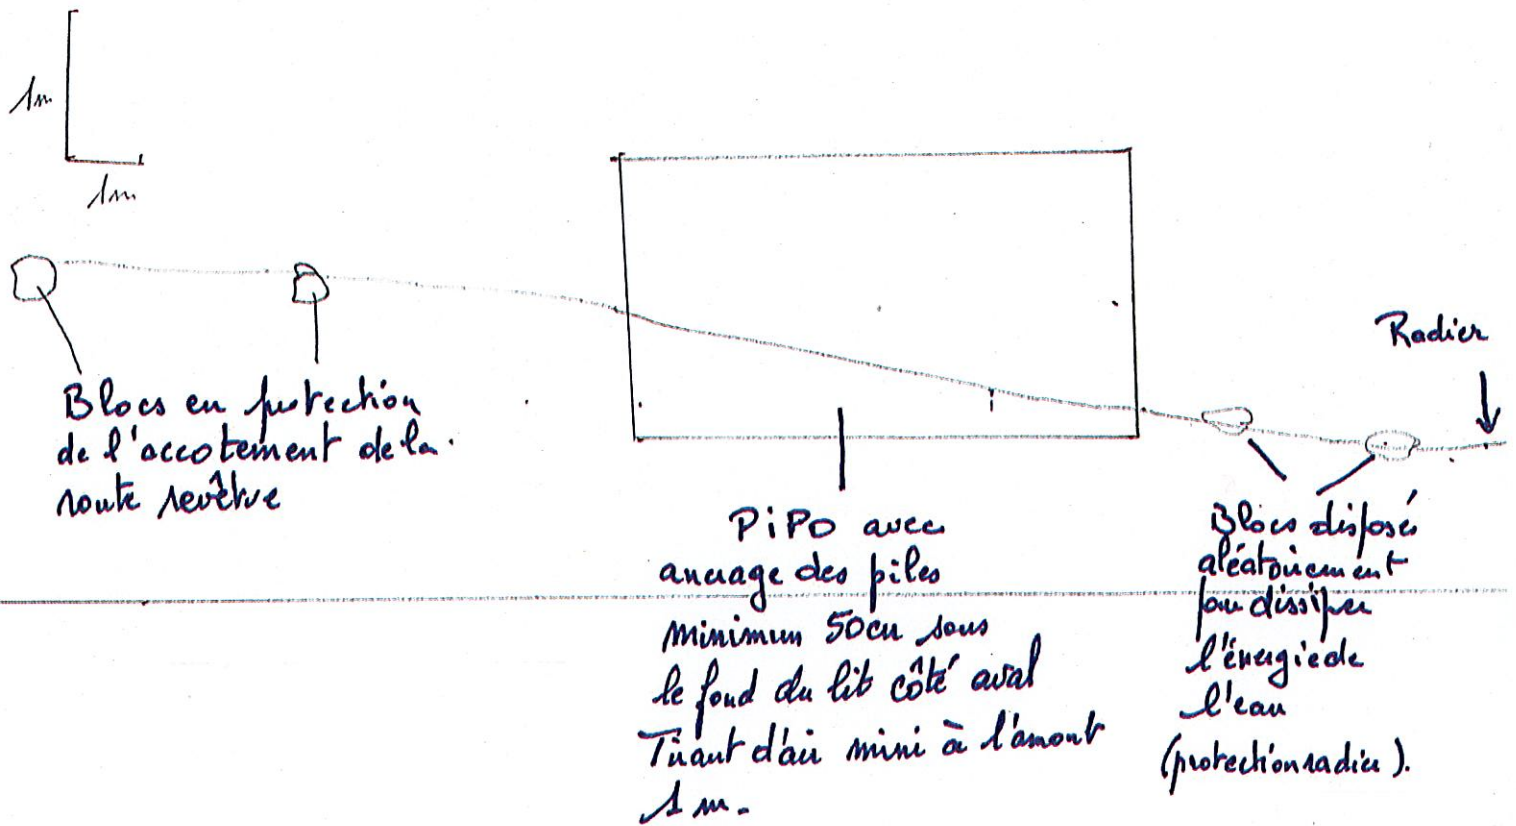 1m
1m
Radier
Blocs en protection
de l'accotement de la
route revêtue
PiPO avec
ancrage des piles
minimum 50cm sous
le fond du lit côté aval
Tirant d'air mini à l'amont
1 m.
Blocs disposés
aléatoirement
pour dissiper
l'énergie de
l'eau
(protection radier).